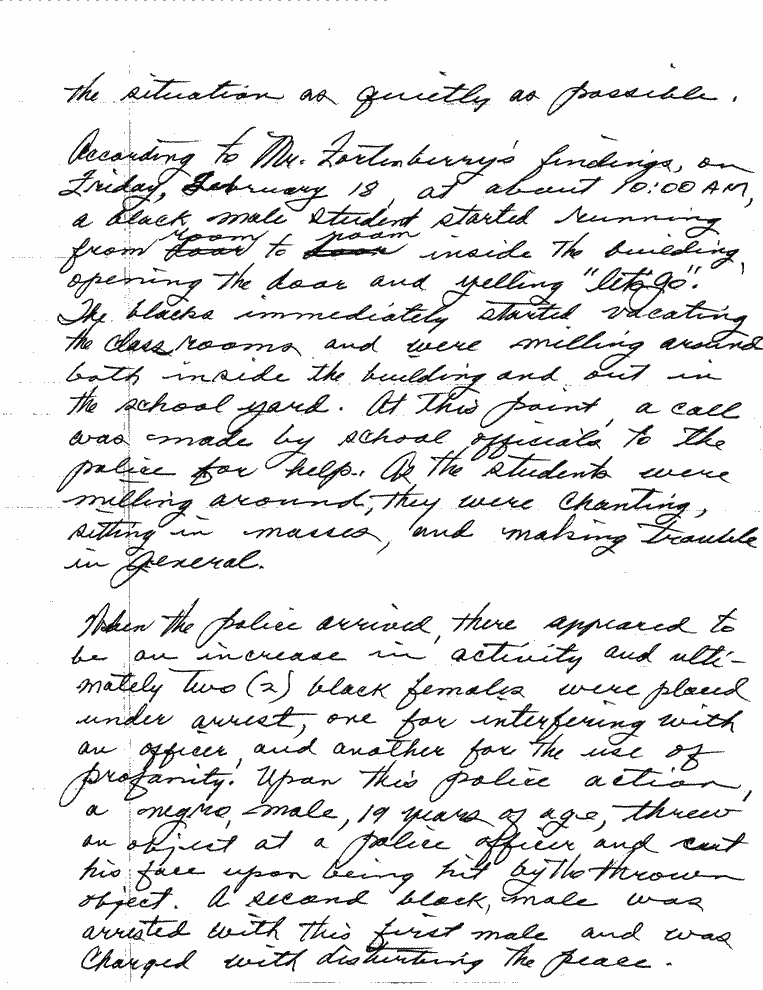 the situation as quietly as possible.
According to Mr. Fortenberry's findings, on
Friday, February 18, at about 10:00 AM,
a black male student started running
room room
from door to door inside the building,
opening the door and yelling "let's go".
The blacks immediately started vacating
the class rooms and were milling around
both inside the building and out in
the school yard. At this point, a call
was made by school officials to the
police for help. As the students were
milling around, they were chanting,
sitting in masses, and making trouble
in general.
When the police arrived, there appeared to
be an increase in activity and ulti-
mately two (2) black females were placed
under arrest, one for interfering with
an officer, and another for the use of
profanity. Upon this police action,
a negro, male, 19 years of age, threw
an object at a police officer and cut
his face upon being hit by the thrown
object. A second black, male was
arrested with this first male and was
charged with disturbing the peace.